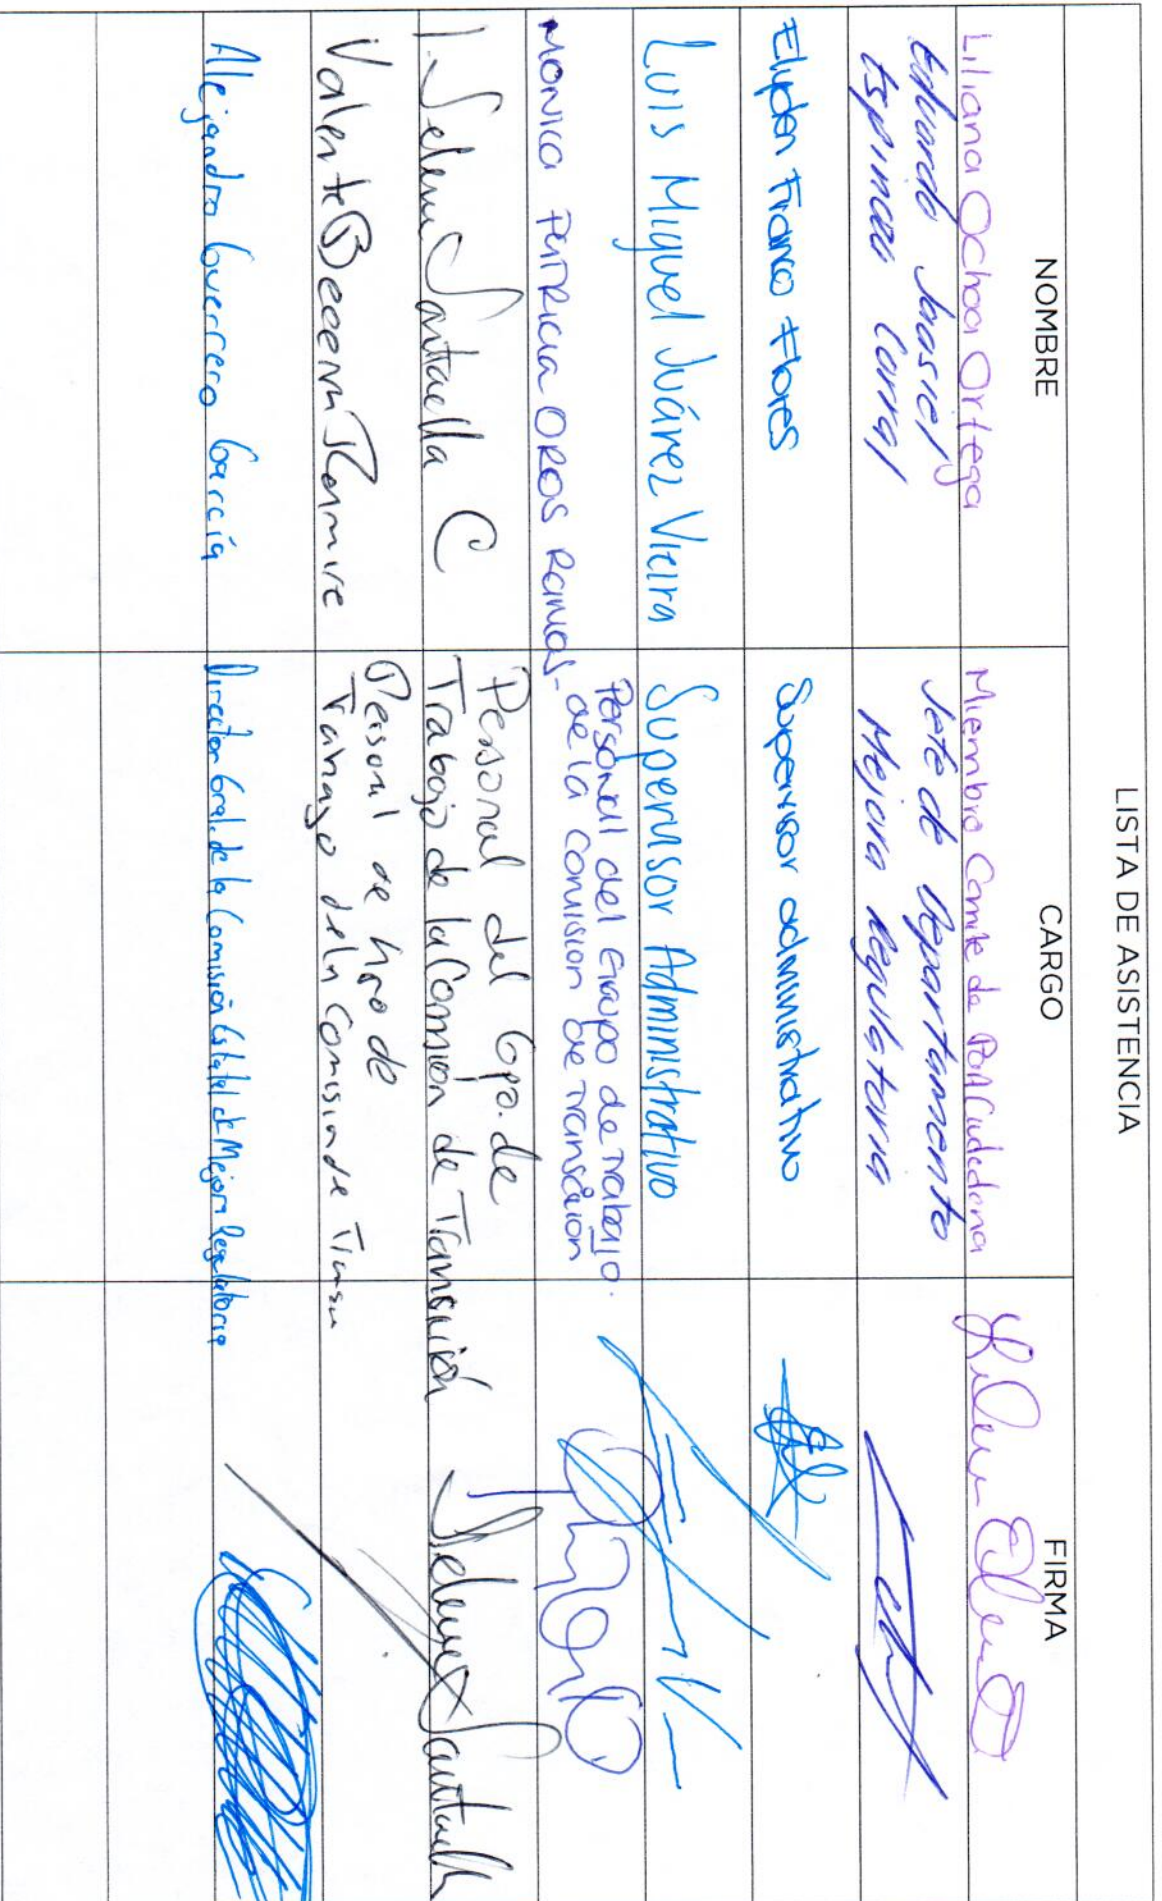 LISTA DE ASISTENCIA
NOMBRE CARGO FIRMA
Liliana Ochoa Ortega Miembro Comite de Part Ciudadana
Eduardo Joassiel Jefe de Departamento
Espinoza Corral Mejora Regulatoria
Franco Flores Supervisor administrativo
Luis Miguel Juárez Vieira Supervisor Administrativo
MONICA PATRICIA OROS Ramos- Personal del Grupo de Trabajo.
de la Comision de Transicion
Selene Santaella C Personal del Gpo. de
Trabajo de la Comisión de Transición
Valente Becerra Personal de de
Trabajo de la Comision de
Alejandro Guerrero García Director Gral. de la Comisión Estatal de Mejora Regulatoria